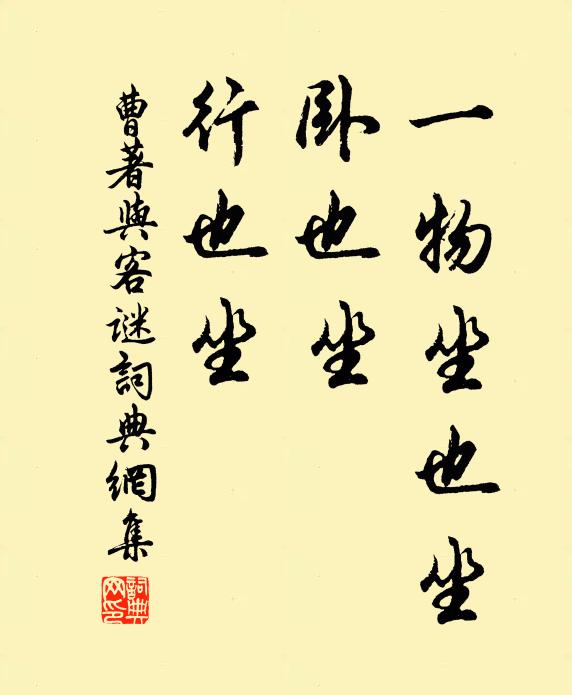 一物坐也坐
卧也坐
行也坐
曹著與客谜詞典網集
詞典網印